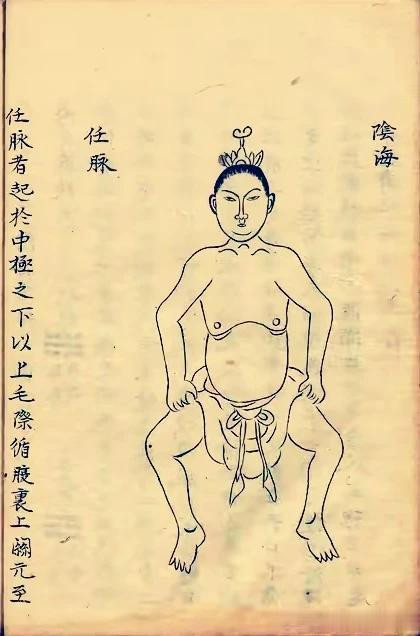 陰海
任脉
任脉者起於中極之下以上毛際循腹裏上關元至